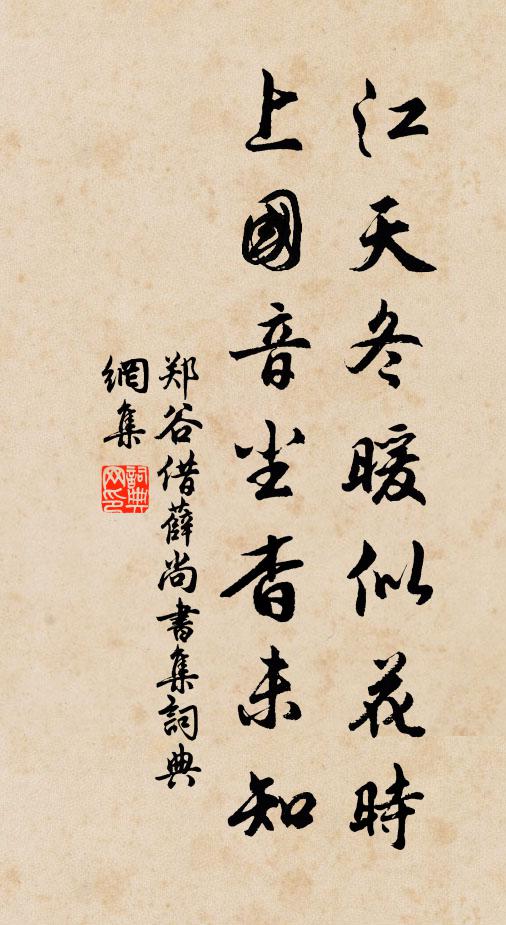 江天冬暖似花時
上國音尘杳未知
郑谷借薛尚書集詞典
網集
詞典
网印